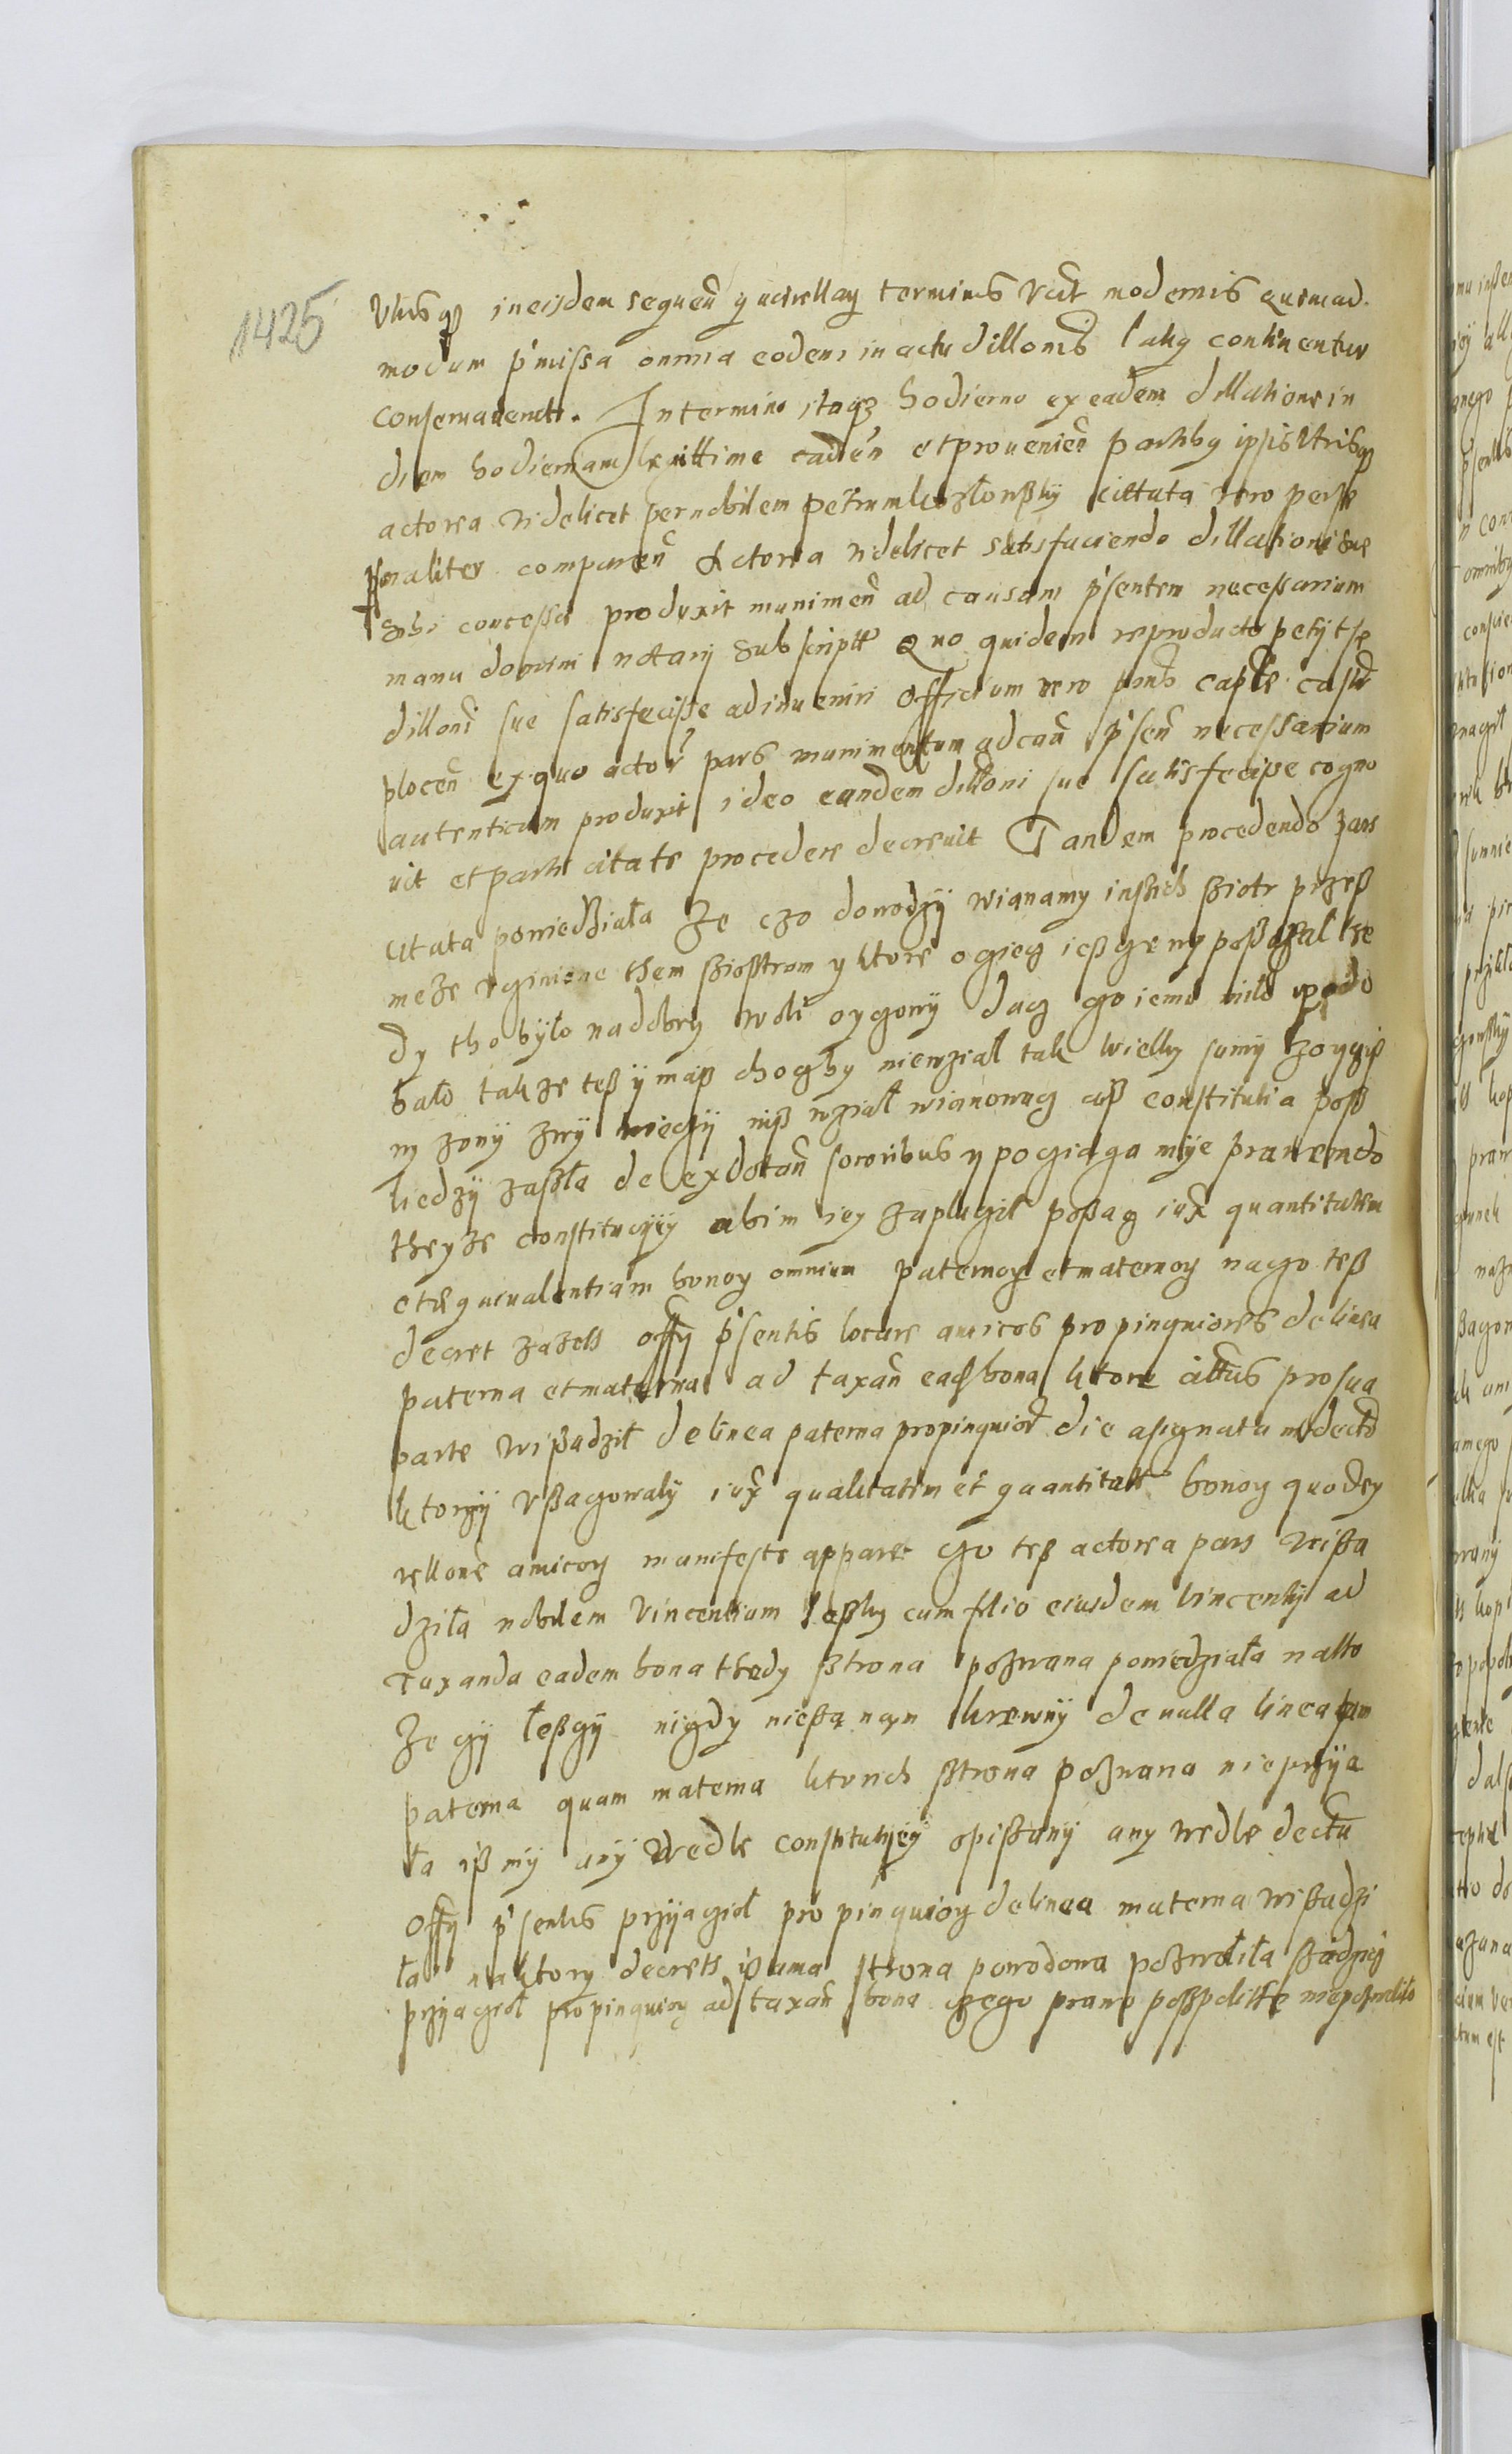 1425
Vltisqȝ in eisdem sequeñ querellaꝝ terminis vať modernis quemad.
modum p'missa omnia eodem in actu dillonis latiꝰ continentur
conservavendi. In termino itaqȝ hodierno ex eadem dillatione in
diem hodiernam legittime cadeñ et provenieñ partibꝰ ipsis Vtrisqȝ
actorea videlicet per nobilem petrum kozłonßky cittata vero perse
psonaliter compareñ Actorea videlicet satisfaciendo dillationi sue
sibi concessa produxit munimeñ ad causam p'sentem necessarium
manu domini notarij subscriptť Quo quidem reproducto petijt se
dilloni sue satisfecisse adinveniri Officium vero pns capťe castr̃
ploceñ ex quo actor̃ pars munimentum ad cañ p'señ necessarium
autenticum produxit ideo eandem dilloni sue satisfecisse cogno
vit et parti citate procedere decrevit Tandem procedendo pars
Citata powiedziała Ze czo dowodzÿ wianamy inßich ßiotr przeß
meze vcinione them ßioßtrom y ktore ogieg ießcze wyposażal the
dy tho bÿło na dobrey woli oÿgowÿ dacz go iemu miło podo
bało tak ze teß ÿ maß chogby niewział tak wielky sumÿ zoÿgiß
ny zonÿ zwÿ wieczÿ niß wział wianowacz aß constitutia poß
kiedzÿ zaßła de exdotañ sororibus y pogiaga miÿe prawem do
theyze constituciÿeÿ abim iey zaplacił poßag iux̃ quantitatem
et equivalentiam bonoꝝ omnium paternoꝝ et maternoꝝ na czo teß
decret zaszetł offÿ p'sentis locare amicos propinquiores de linea
paterna et materna ad taxañ eadħ bona ktore cittatus pro sua
parte wißadził de linea paterna propinquior̃ die asignata in decto
ktorzÿ vßacowaly iux̃ qualitatem et quantitatē bonoꝝ quod ex
rellone amicoꝝ manifeste apparet czo teß actorea pars wißa
dziła nobilem Vincentium leßky cum filio eiusdem Vincentÿ ad
taxanda eadem bona thedy ßtrona pozwana powiedziała na tho
Ze cÿ leßcÿ nigdy nießą nam krewnÿ de nulla linea tam
paterna quam materna ktorich ßtrona pozwana nieprzÿia
ła iß nÿ anÿ Wedle constituhÿeÿ opißanÿ any wedle dectu
Offÿ p'sentis przÿiagioł propinquioꝝ de linea materna wißadzi
ła na ktory decrets iß ama strona powodowa pozwoliła ßadzicz
przÿiagioł propinquioꝝ ad taxañ bona czego prawo poßpolitte niepozwoliło